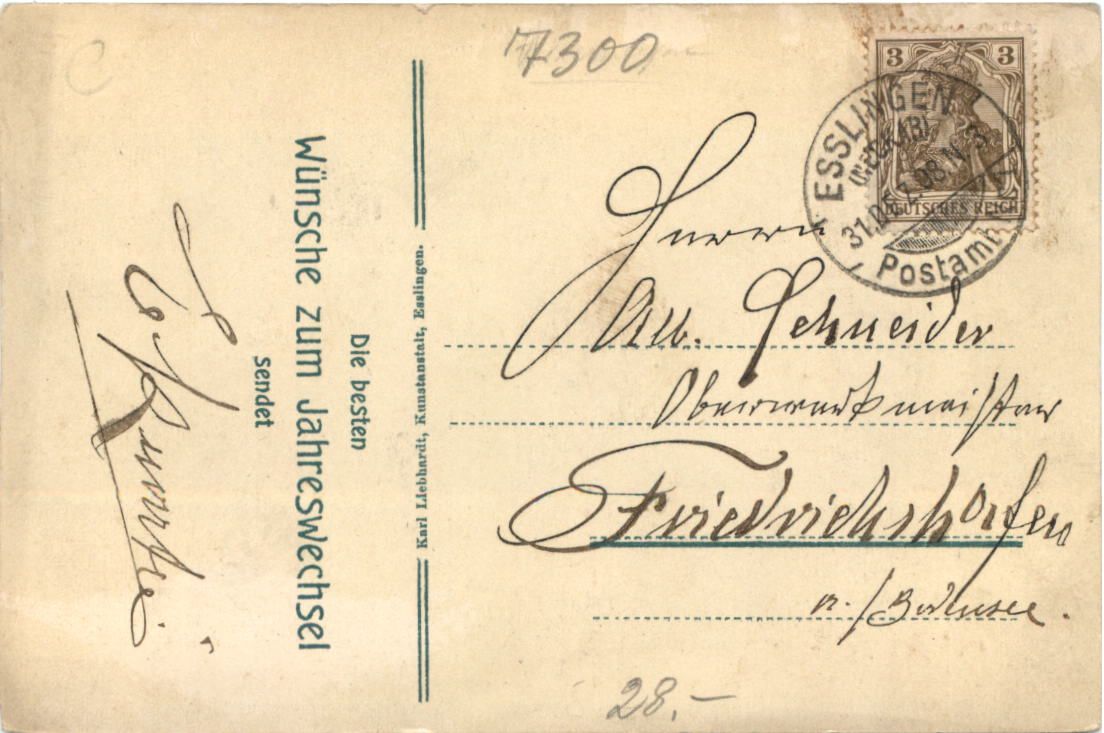 7300
C
Die besten
Wünsche zum Jahreswechsel
sendet
Karl Liebhardt, Kunstanstalt, Esslingen.
3 3
DEUTSCHES REICH
ESSLINGEN
(NECKAR)
31.DEZ.08.N.
Postamt
Herrn
Alb. Schneider
Oberwerkmeister
Friedrichshafen
a./Bodensee.
28.-